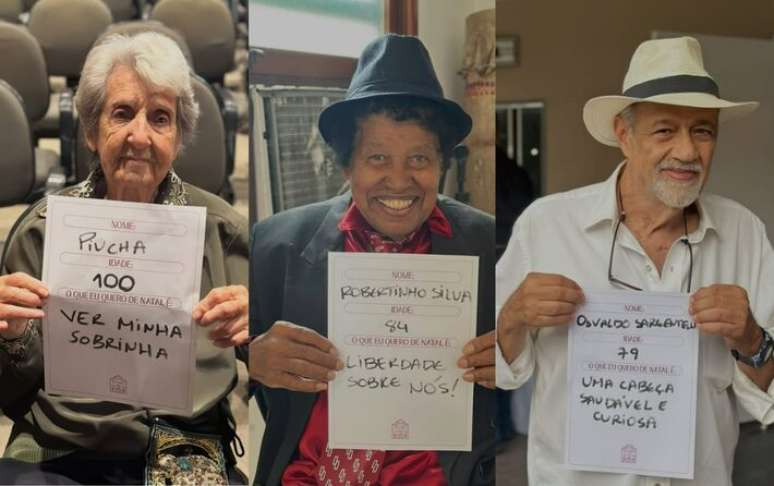 NOME:
PIUCHA
IDADE:
100
O QUE EU QUERO DE NATAL É:
VER MINHA
SOBRINHA
NOME:
ROBERTINHO SILVA
IDADE:
84
O QUE EU QUERO DE NATAL É:
LIBERDADE
SOBRE NÓS!
NOME:
OSVALDO SARGENTELLI
IDADE:
79
O QUE EU QUERO DE NATAL É:
UMA CABEÇA
SAUDÁVEL E
CURIOSA